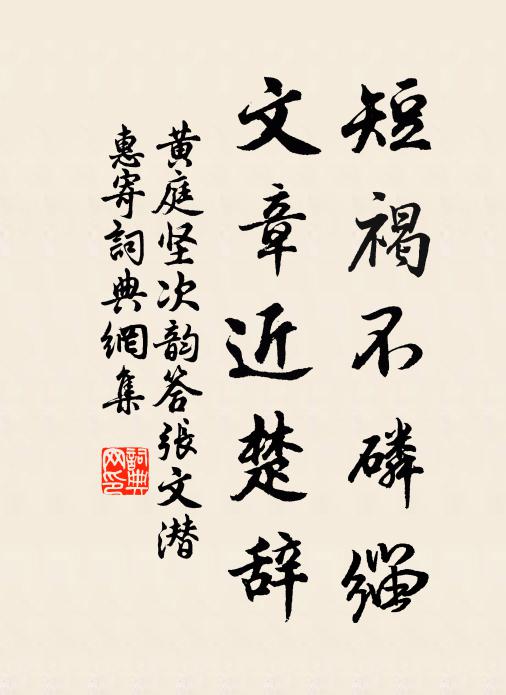 短褐不磷缁
文章近楚辞
黄庭坚次韵答张文潜
惠寄词典網集
詞典网印